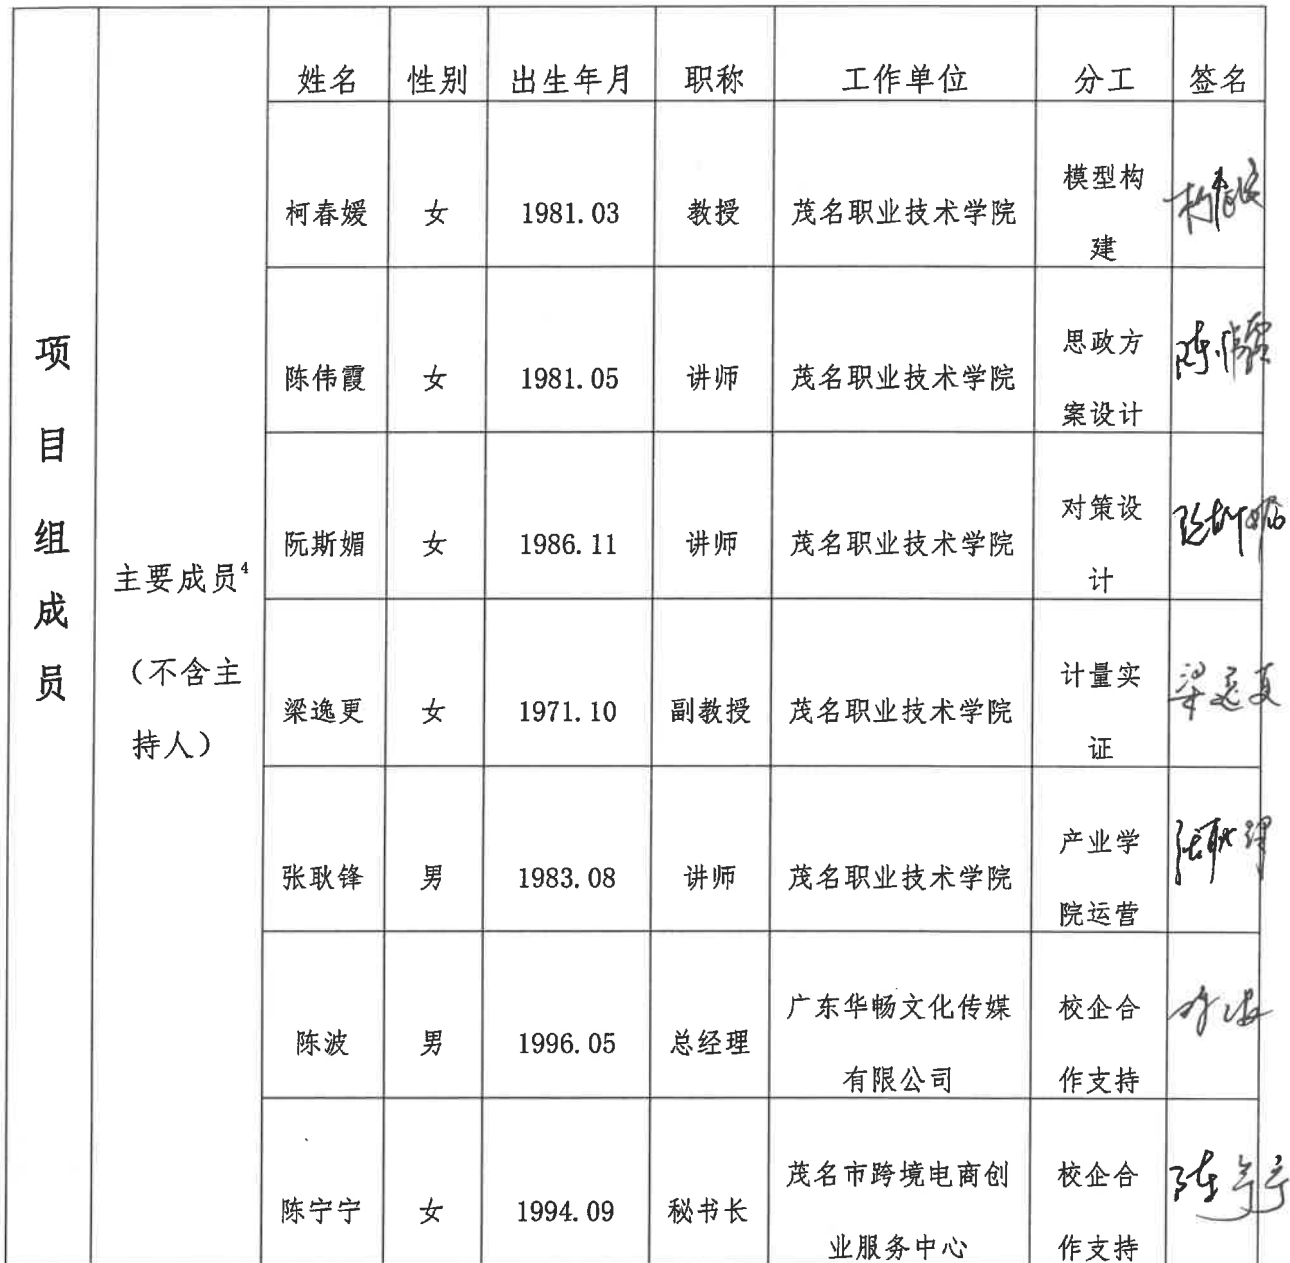 项目组成员
主要成员⁴
（不含主
持人）
姓名 性别 出生年月 职称 工作单位 分工 签名
柯春媛 女 1981.03 教授 茂名职业技术学院 模型构
建
柯春媛
陈伟霞 女 1981.05 讲师 茂名职业技术学院 思政方
案设计
陈伟霞
阮斯媚 女 1986.11 讲师 茂名职业技术学院 对策设
计
阮斯媚
梁逸更 女 1971.10 副教授 茂名职业技术学院 计量实
证
梁逸更
张耿锋 男 1983.08 讲师 茂名职业技术学院 产业学
院运营
张耿锋
陈波 男 1996.05 总经理 广东华畅文化传媒
有限公司
校企合
作支持
陈波
陈宁宁 女 1994.09 秘书长 茂名市跨境电商创
业服务中心
校企合
作支持
陈宁宁